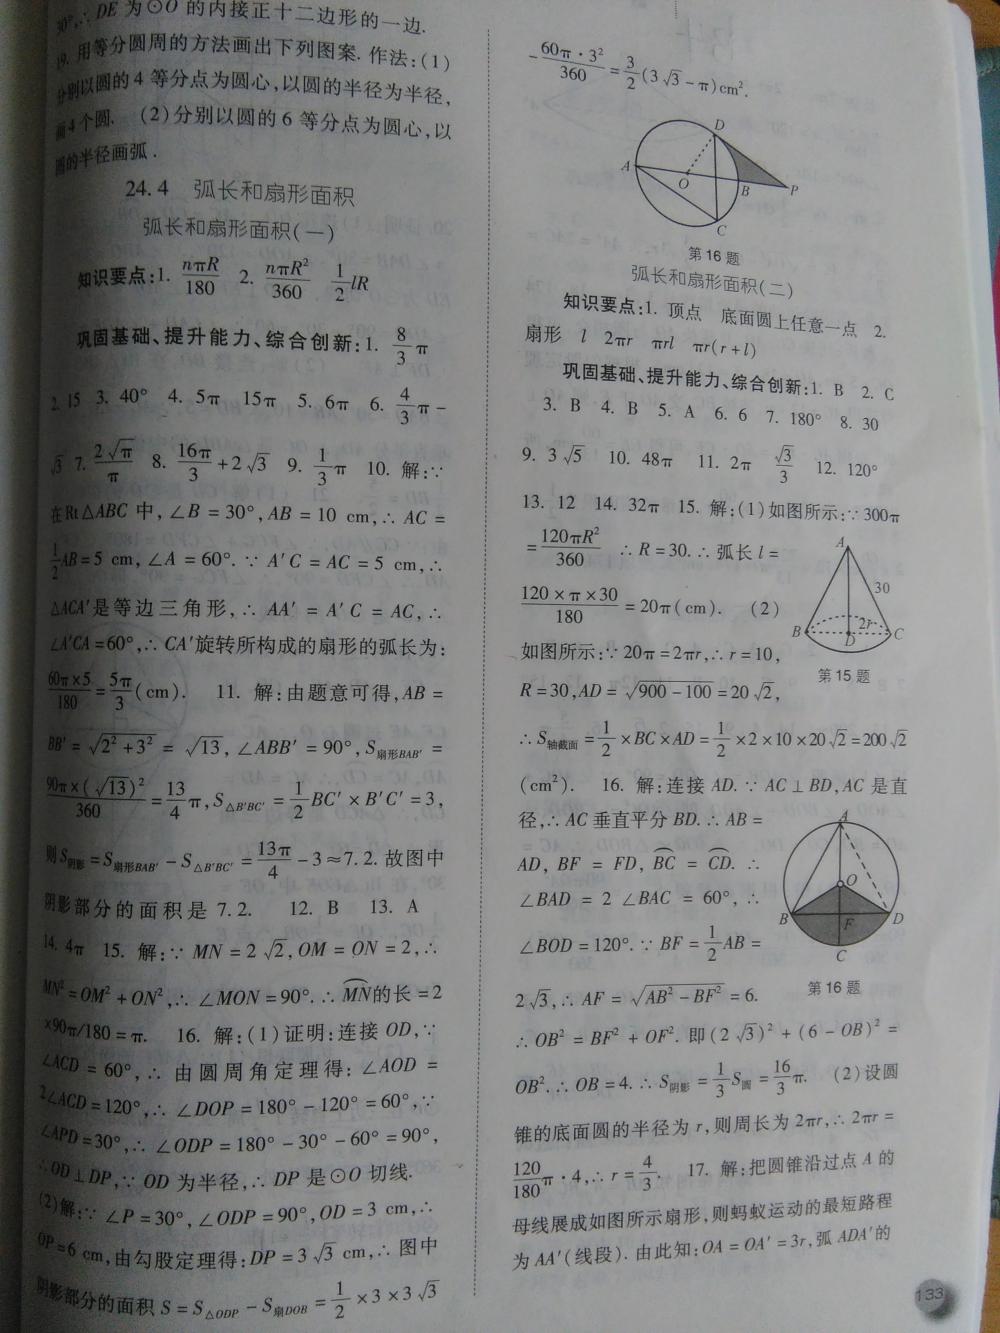 30°,∴ DE 为⊙O 的内接正十二边形的一边.
19. 用等分圆周的方法画出下列图案. 作法:(1)
分别以圆的 4 等分点为圆心,以圆的半径为半径,
画 4 个圆. (2)分别以圆的 6 等分点为圆心,以
圆的半径画弧.
24.4 弧长和扇形面积
弧长和扇形面积(一)
知识要点:1. nπR/180 2. nπR²/360 1/2 lR
巩固基础、提升能力、综合创新:1. 8/3 π
2. 15 3. 40° 4. 5π 15π 5. 6π 6. 4/3 π -
√3 7. 2√π/π 8. 16π/3 + 2√3 9. 1/3 π 10. 解:∵
在 Rt△ABC 中, ∠B = 30°, AB = 10 cm,∴ AC =
1/2 AB = 5 cm, ∠A = 60°. ∵ A′C = AC = 5 cm,∴
△ACA′是等边三角形,∴ AA′ = A′C = AC,∴
∠A′CA = 60°,∴ CA′旋转所构成的扇形的弧长为:
60π×5/180 = 5π/3 (cm). 11. 解:由题意可得, AB =
BB′ = √(2² + 3²) = √13, ∠ABB′ = 90°, S扇形BAB′ =
90π×(√13)²/360 = 13/4 π, S△B′BC′ = 1/2 BC′ × B′C′ = 3,
则 S阴影 = S扇形BAB′ - S△B′BC′ = 13π/4 - 3 ≈ 7.2. 故图中
阴影部分的面积是 7.2. 12. B 13. A
14. 4π 15. 解:∵ MN = 2√2, OM = ON = 2,∴
MN² = OM² + ON²,∴ ∠MON = 90°.∴ M͡N的长 = 2
×90π/180 = π. 16. 解:(1)证明:连接 OD,∵
∠ACD = 60°,∴ 由圆周角定理得: ∠AOD =
2∠ACD = 120°,∴ ∠DOP = 180° - 120° = 60°,∵
∠APD = 30°,∴ ∠ODP = 180° - 30° - 60° = 90°,
∴OD⊥DP,∵ OD 为半径,∴ DP 是⊙O 切线.
(2)解:∵ ∠P = 30°, ∠ODP = 90°, OD = 3 cm,∴
OP = 6 cm,由勾股定理得:DP = 3√3 cm,∴ 图中
阴影部分的面积 S = S△ODP - S扇DOB = 1/2 × 3 × 3√3
- 60π·3²/360 = 3/2 (3√3 - π)cm².
D
A
O
B
P
C
第 16 题
弧长和扇形面积(二)
知识要点:1. 顶点 底面圆上任意一点 2.
扇形 l 2πr πrl πr(r + l)
巩固基础、提升能力、综合创新:1. B 2. C
3. B 4. B 5. A 6. 6 7. 180° 8. 30
9. 3√5 10. 48π 11. 2π √3/3 12. 120°
13. 12 14. 32π 15. 解:(1)如图所示:∵ 300π
= 120πR²/360 ∴ R = 30.∴ 弧长 l =
120×π×30/180 = 20π(cm). (2)
如图所示:∵ 20π = 2πr,∴ r = 10,
R = 30, AD = √(900 - 100) = 20√2,
A
30
B
2r
C
D
第 15 题
∴ S轴截面 = 1/2 × BC × AD = 1/2 × 2 × 10 × 20√2 = 200√2
(cm²). 16. 解:连接 AD. ∵ AC⊥BD, AC 是直
径,∴ AC 垂直平分 BD.∴ AB =
AD, BF = FD, B͡C = C͡D. ∴
∠BAD = 2∠BAC = 60°,∴
∠BOD = 120°. ∵ BF = 1/2 AB =
2√3,∴ AF = √(AB² - BF²) = 6.
A
O
B
F
D
C
第 16 题
∴ OB² = BF² + OF². 即(2√3)² + (6 - OB)² =
OB².∴ OB = 4.∴ S阴影 = 1/3 S圆 = 16/3 π. (2)设圆
锥的底面圆的半径为 r,则周长为 2πr,∴ 2πr =
120/180 π·4,∴ r = 4/3. 17. 解:把圆锥沿过点 A 的
母线展成如图所示扇形,则蚂蚁运动的最短路程
为 AA′(线段). 由此知:OA = OA′ = 3r,弧 ADA′的
133